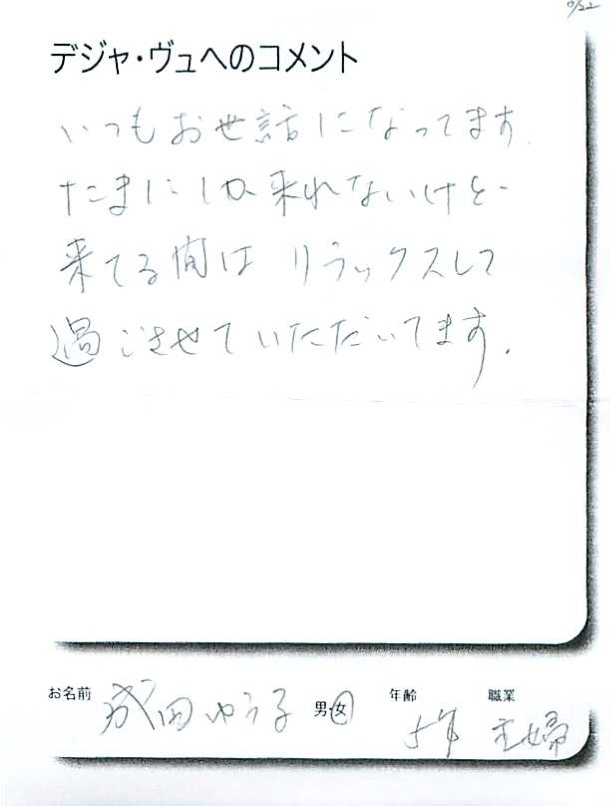 デジャ・ヴュへのコメント
いつもお世話になってます.
たまにしか来れないけど.
来てる間は リラックスして
過ごさせていただいてます.
お名前 成田ゆう子 男女 年齢 職業 主婦